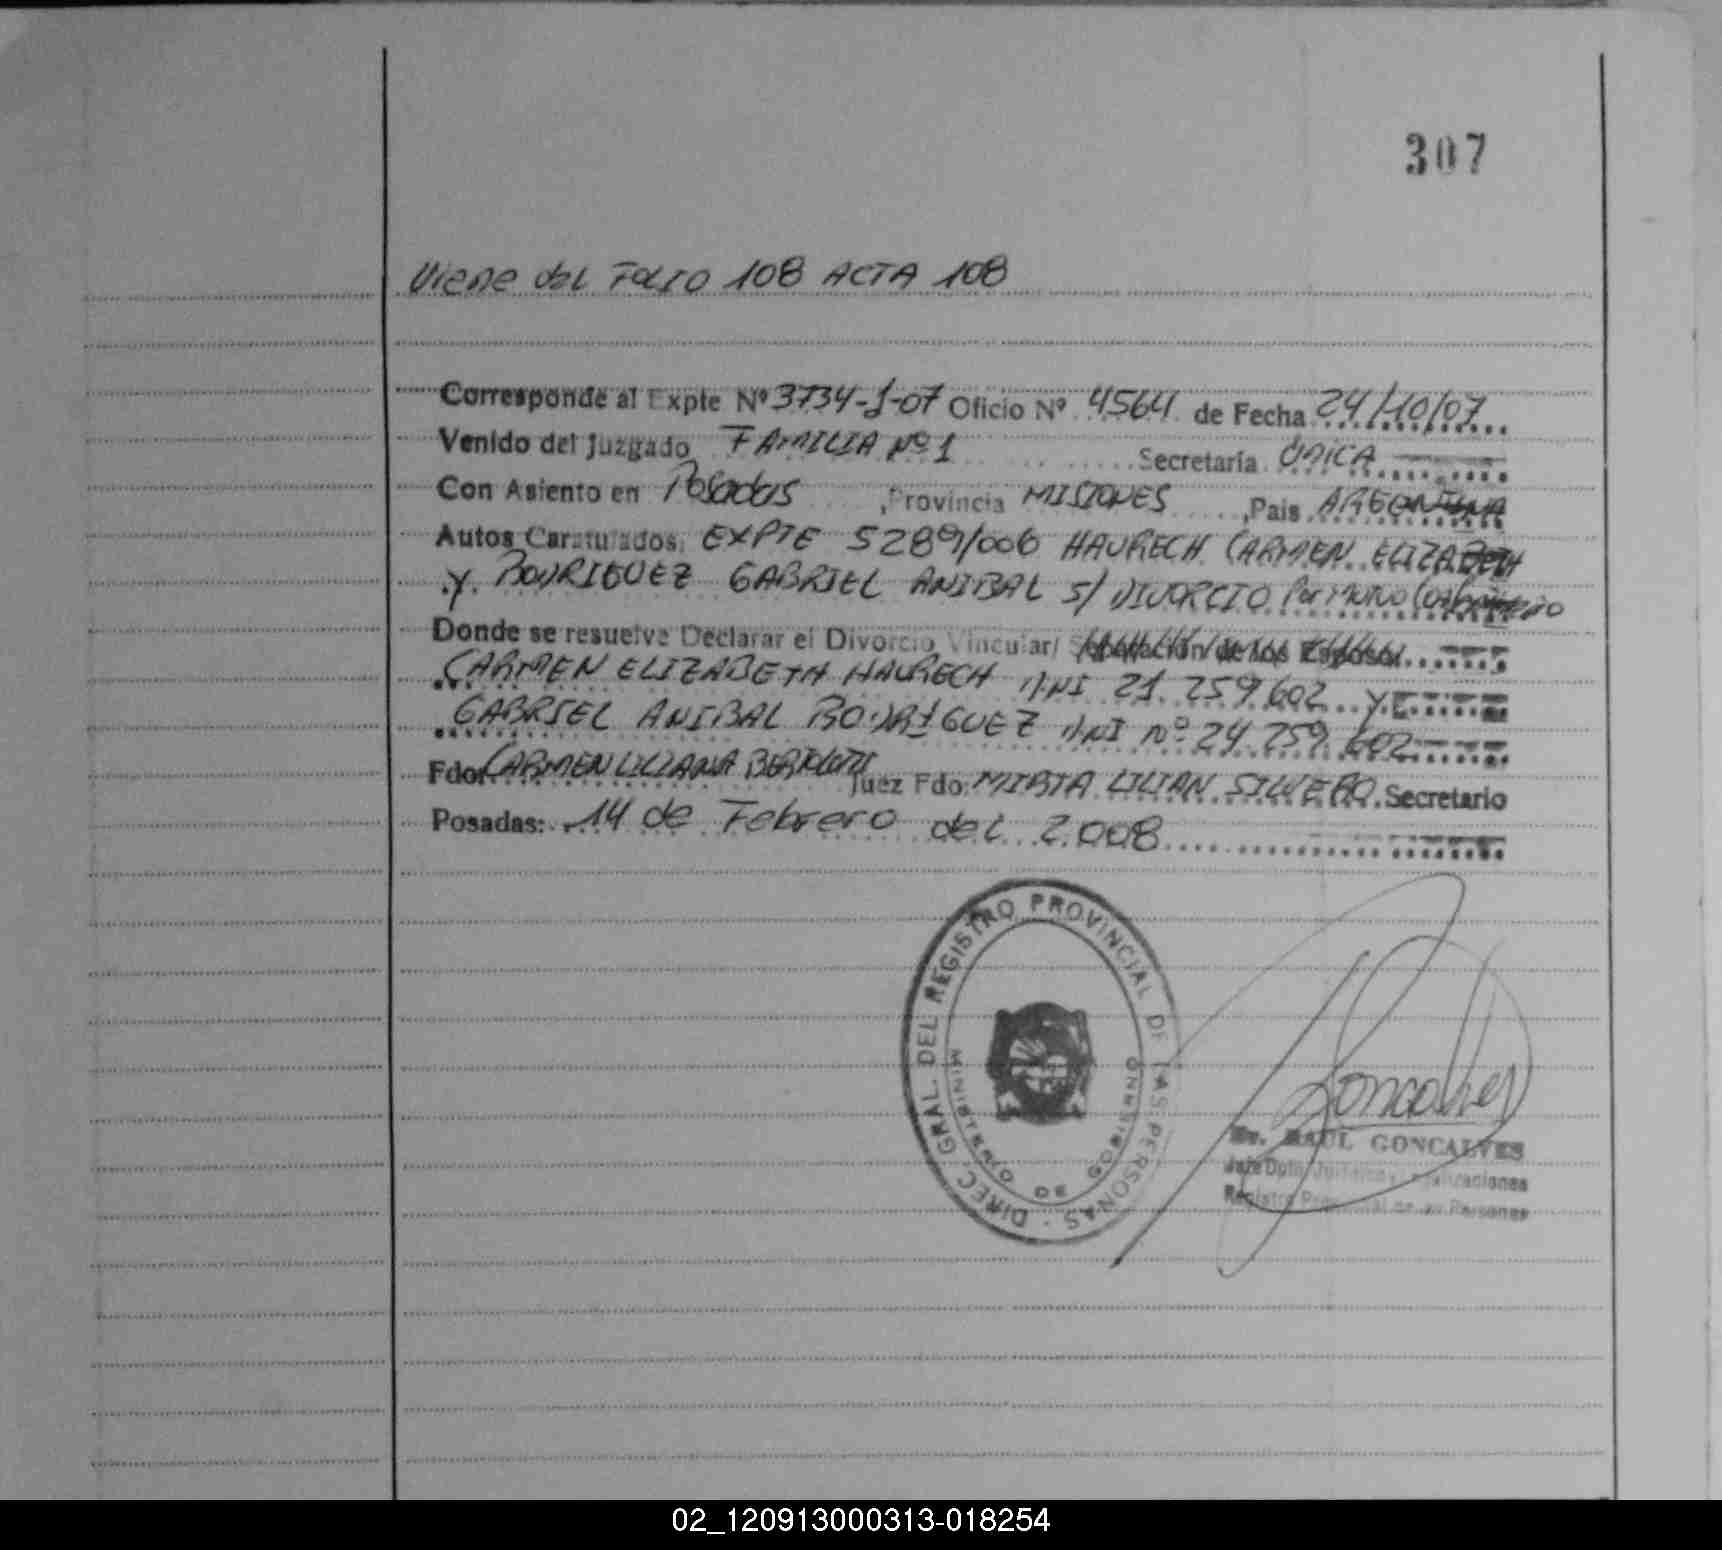 307
Viene del Folio 108 ACTA 108
Corresponde al Expte Nº 3734-J-07 Oficio Nº 4564 de Fecha 24/10/07
Venido del Juzgado FAMILIA Nº 1 Secretaría ÚNICA
Con Asiento en Posadas, Provincia MISIONES, Pais ARGENTINA
Autos Caratulados: EXPTE 5289/006 HAURECH CARMEN ELIZABETH
y RODRIGUEZ GABRIEL ANIBAL S/ DIVORCIO Por MUTUO
Donde se resuelve Declarar el Divorcio Vincular/ Separación de los Esposos
CARMEN ELIZABETH HAURECH DNI 21.259.602 y
GABRIEL ANIBAL RODRIGUEZ DNI Nº 24.259.602
Fdo: CARMEN LILIANA Juez Fdo: MIRTA LILIAN SILVERO Secretario
Posadas: 14 de Febrero del 2.008
DIREC. GRAL. DEL REGISTRO PROVINCIAL DE LAS PERSONAS
MINISTERIO DE GOBIERNO
Goncalves
Dr. RAUL GONCALVES
Registro Provincial de las Personas
02_120913000313-018254